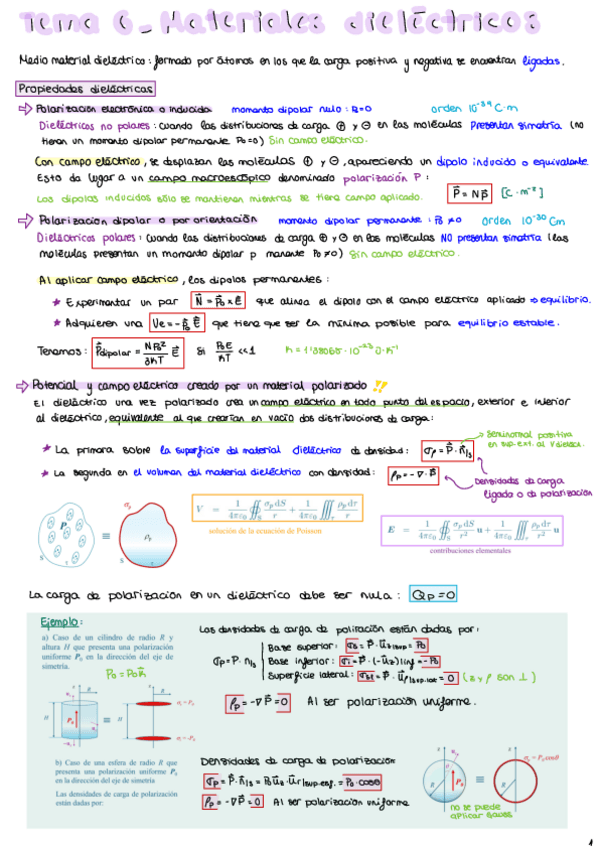 Tema 6_ Materiales dieléctricos
Medio material dieléctrico: formado por átomos en los que la carga positiva y negativa se encuentran ligadas.
Propiedades dieléctricas
⇒ Polarización electrónica o inducida momento dipolar nulo: P₀=0 orden 10⁻³⁹ C·m
Dieléctricos no polares: Cuando las distribuciones de carga ⊕ y ⊖ en las moléculas presentan simetría (no
tienen un momento dipolar permanente P₀=0) Sin campo eléctrico.
Con campo eléctrico, se desplazan las moléculas ⊕ y ⊖, apareciendo un dipolo inducido o equivalente
Esto da lugar a un campo macroescópico denominado polarización P:
Los dipolos inducidos sólo se mantienen mientras se tiene campo aplicado. P⃗ = Np⃗ [C·m⁻²]
⇒ Polarización dipolar o por orientación momento dipolar permanente: P⃗₀ ≠0 orden 10⁻³⁰ Cm
Dieléctricos polares: Cuando las distribuciones de carga ⊕ y ⊖ en las moléculas NO presentan simetría (las
moléculas presentan un momento dipolar p manente P₀≠0) Sin campo eléctrico.
Al aplicar campo eléctrico, los dipolos permanentes:
★ Experimentar un par N⃗ = p⃗₀ × E⃗ que alinea el dipolo con el campo eléctrico aplicado ⇒ equilibrio.
★ Adquieren una Ve = -p⃗₀ E⃗ que tiene que ser la mínima posible para equilibrio estable.
Tenemos: P⃗dipolar = NP₀²/3KT E⃗ Si P₀E/KT <<1 K = 1'38065·10⁻²³ J·K⁻¹
⇒ Potencial y campo eléctrico creado por un material polarizado
El dieléctrico una vez polarizado crea un campo eléctrico en todo punto del espacio, exterior e interior
al dieléctrico, equivalente al que crearían en vacío dos distribuciones de carga:
seminormal positiva
en sup.ext. al dieléct.
★ La primera sobre la superficie del material dieléctrico de densidad: σp = P⃗·n⃗|s
★ La segunda en el volumen del material dieléctrico con densidad: ρp = -∇·P⃗
Densidades de carga
ligada o de polarización
P S τ ≡ σp ρp S τ
V = 1/4πε₀ ∯S σp dS/r + 1/4πε₀ ∭τ ρp dτ/r
solución de la ecuación de Poisson
E = 1/4πε₀ ∯S σp dS/r² u + 1/4πε₀ ∭τ ρp dτ/r² u
contribuciones elementales
La carga de polarización en un dieléctrico debe ser nula: Qp=0
Ejemplo:
a) Caso de un cilindro de radio R y
altura H que presenta una polarización
uniforme P₀ en la dirección del eje de
simetría.
P₀ = P₀k⃗
Las densidades de carga de poliración están dadas por:
σp = P·n|s
Base superior: σs = P⃗·u⃗z|sup = P₀
Base inferior: σi = P⃗·(-u⃗z)|inf = -P₀
Superficie lateral: σsl = P⃗·u⃗ρ|sup.lat = 0 (z y ρ son ⊥)
ρp = -∇P⃗ = 0 Al ser polarización uniforme.
H R P₀ ≡ H R
b) Caso de una esfera de radio R que
presenta una polarización uniforme P₀
en la dirección del eje de simetría
Las densidades de carga de polarización
están dadas por:
Densidades de carga de polarización
σp = P⃗·n⃗|s = P₀u⃗z·u⃗r|sup.esf. = P₀ cosθ
ρp = -∇P⃗ = 0 Al ser polarización uniforme
R P₀ ≡ R σs = P₀cosθ
no se puede
aplicar Gauss
1